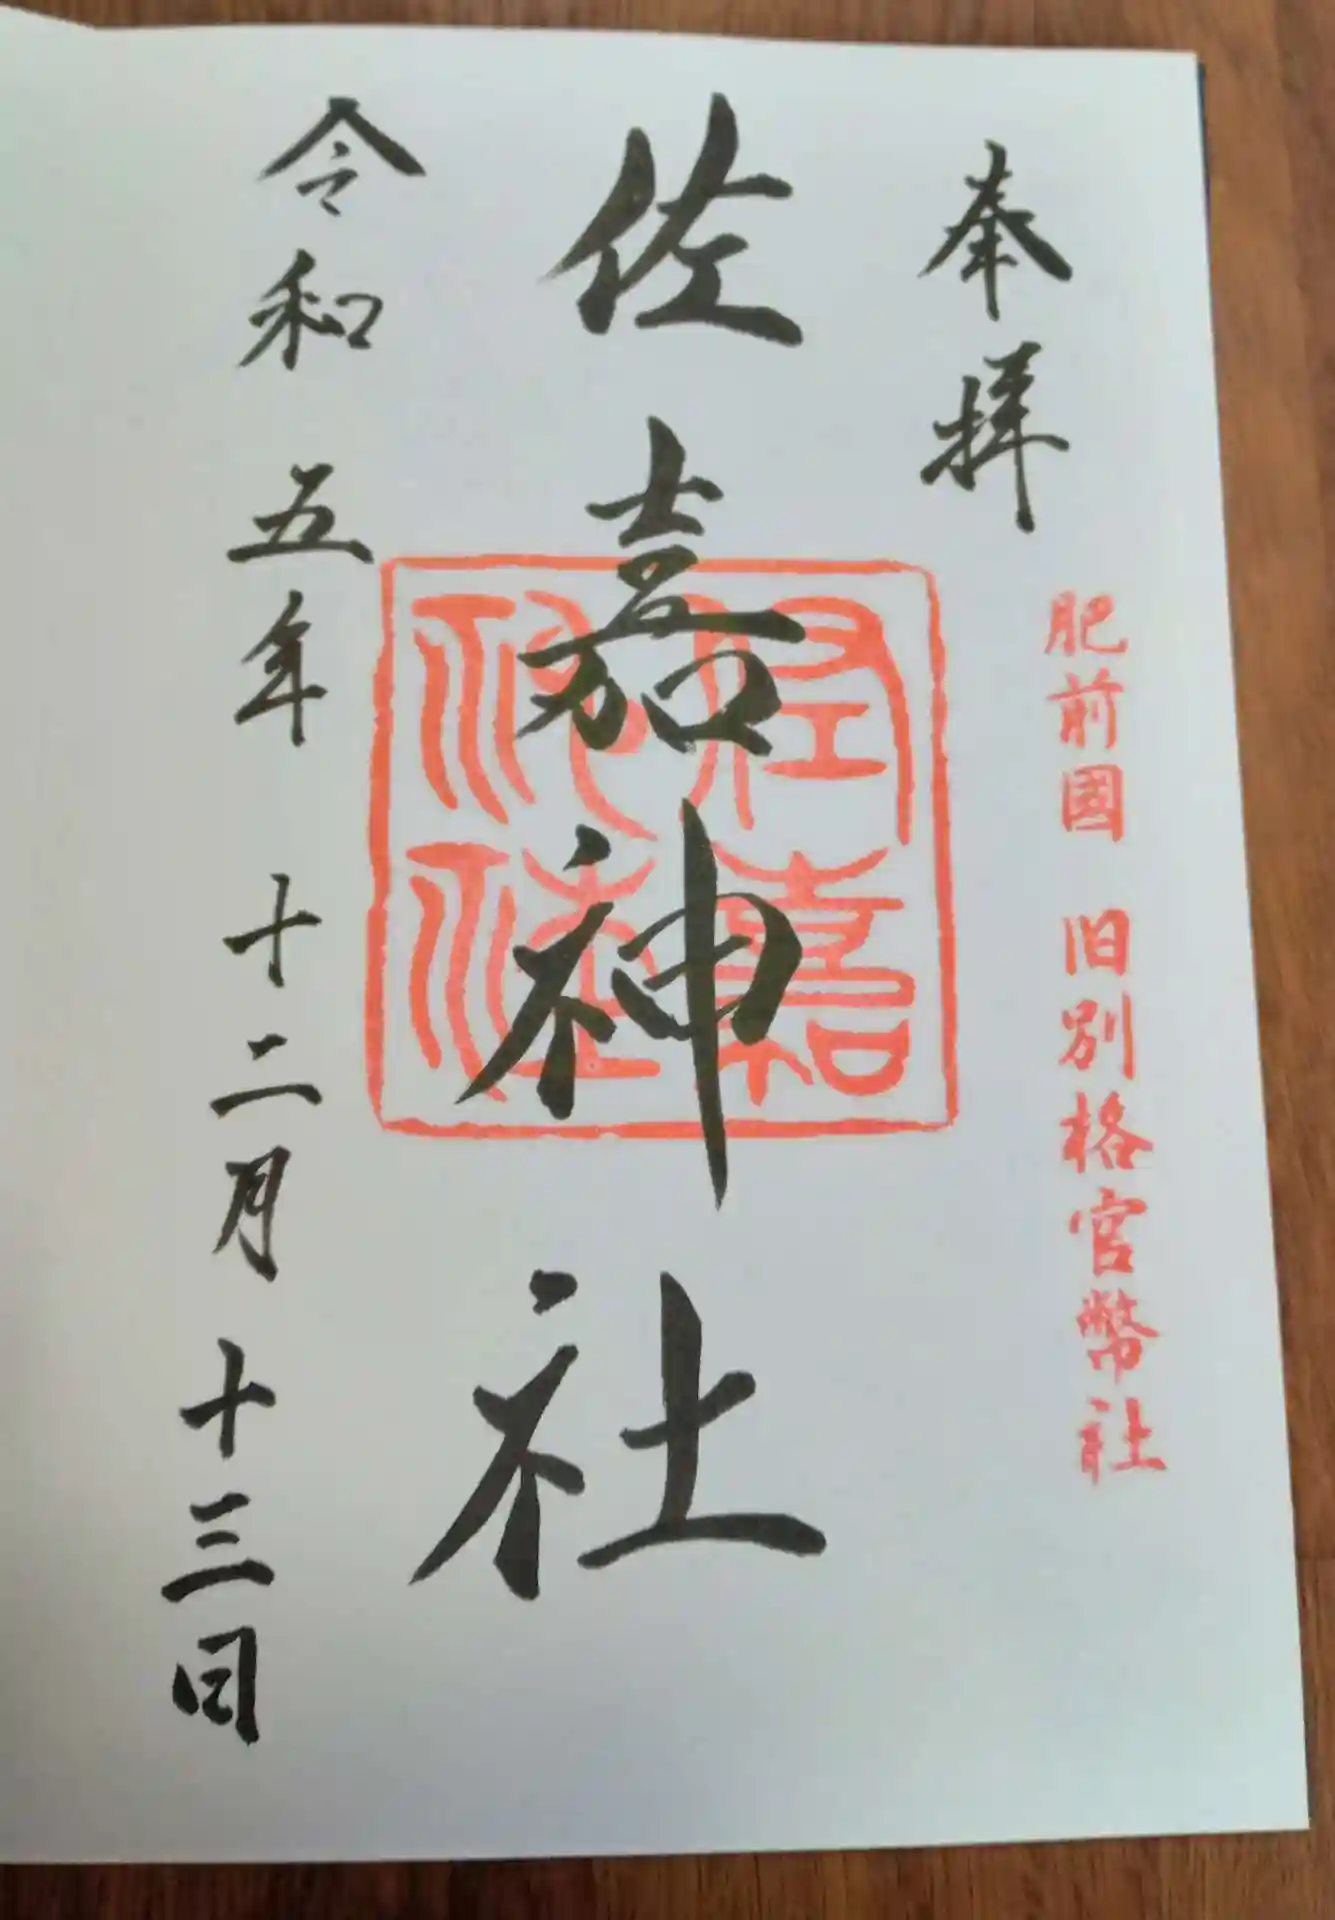 奉拝
肥前國 旧別格官幣社
佐嘉神社
佐嘉神社
令和五年 十二月十三日